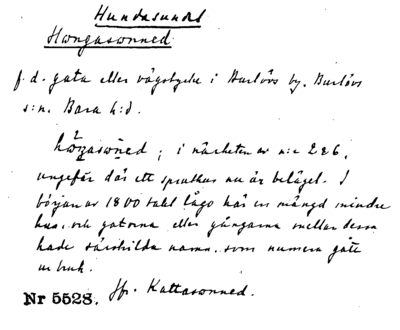 Hundasundet
Hongasonned
f. d. gata eller vägstycke i Burlövs by. Burlövs
s:n. Bara h:d.
i närheten av n:r 2 & 6,
ungefär där ett spruthus nu är beläget. I
början av 1800 talet lågo här en mängd mindre
hus, och gatorna eller gångarna mellan dessa
hade särskilda namn, som numera gått
ur bruk.
Nr 5528. Jfr. Kattasonned.